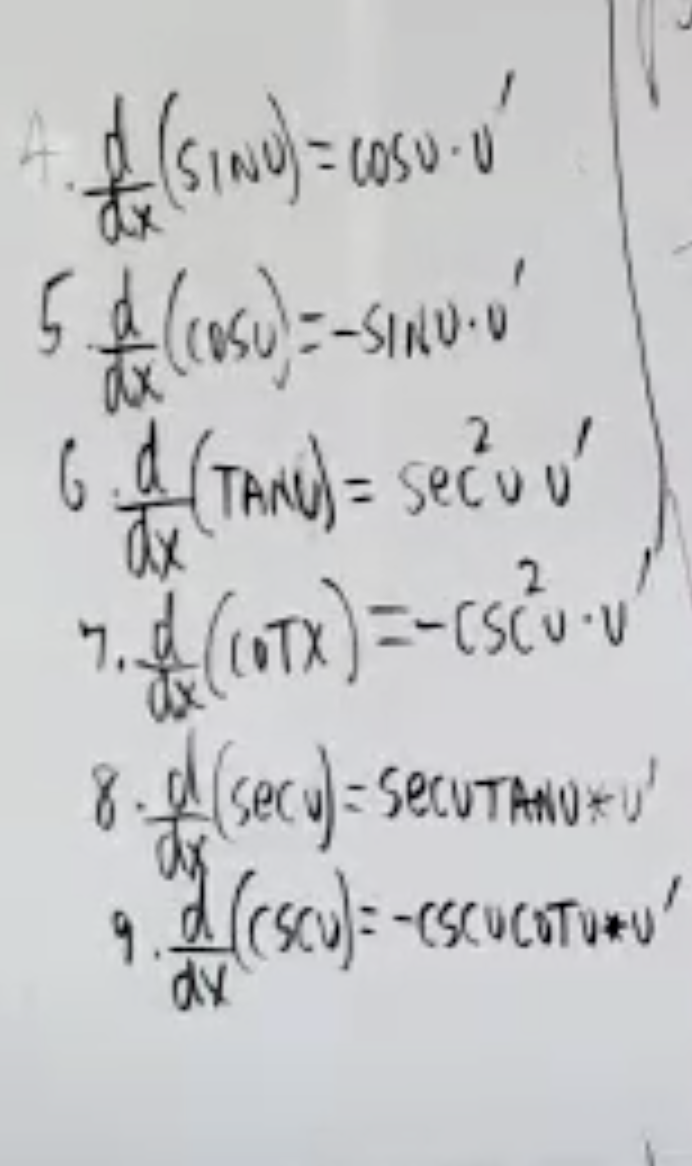 4. d/dx (SINU) = COSU · U'
5. d/dx (COSU) = -SINU · U'
6. d/dx (TANU) = Sec²U U'
7. d/dx (COTX) = -CSC²U · U'
8. d/dx (SecU) = SecUTANU * U'
9. d/dx (CSCU) = -CSCUCOTU * U'